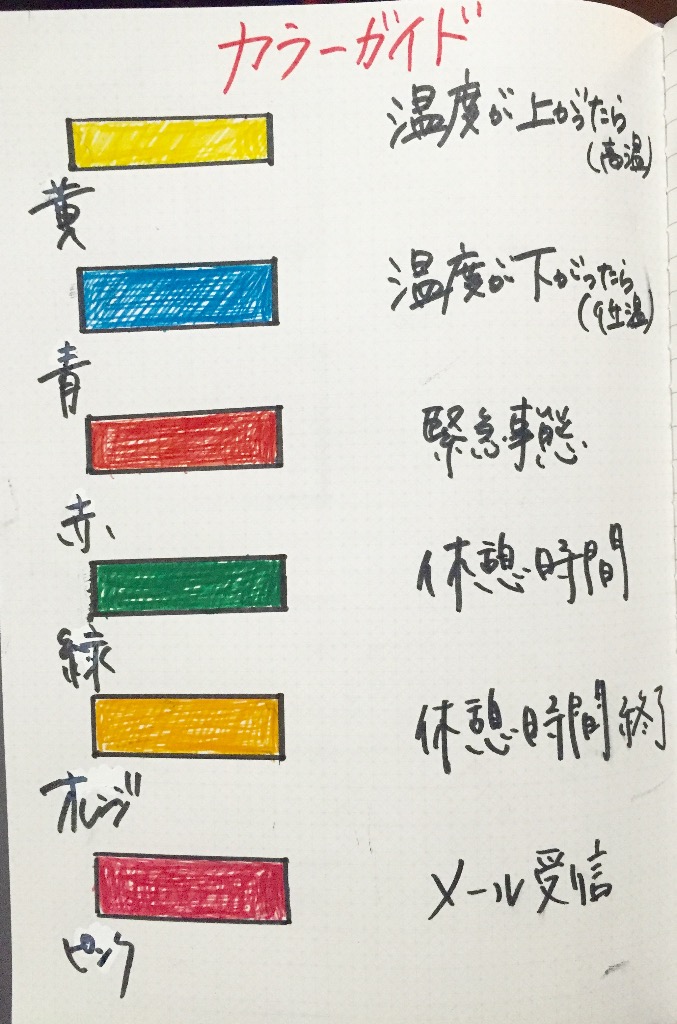 カラーガイド
温度が上がったら
(高温)
黄
温度が下がったら
(低温)
青
緊急事態
赤
休憩時間
緑
休憩時間終了
オレンジ
メール受信
ピンク